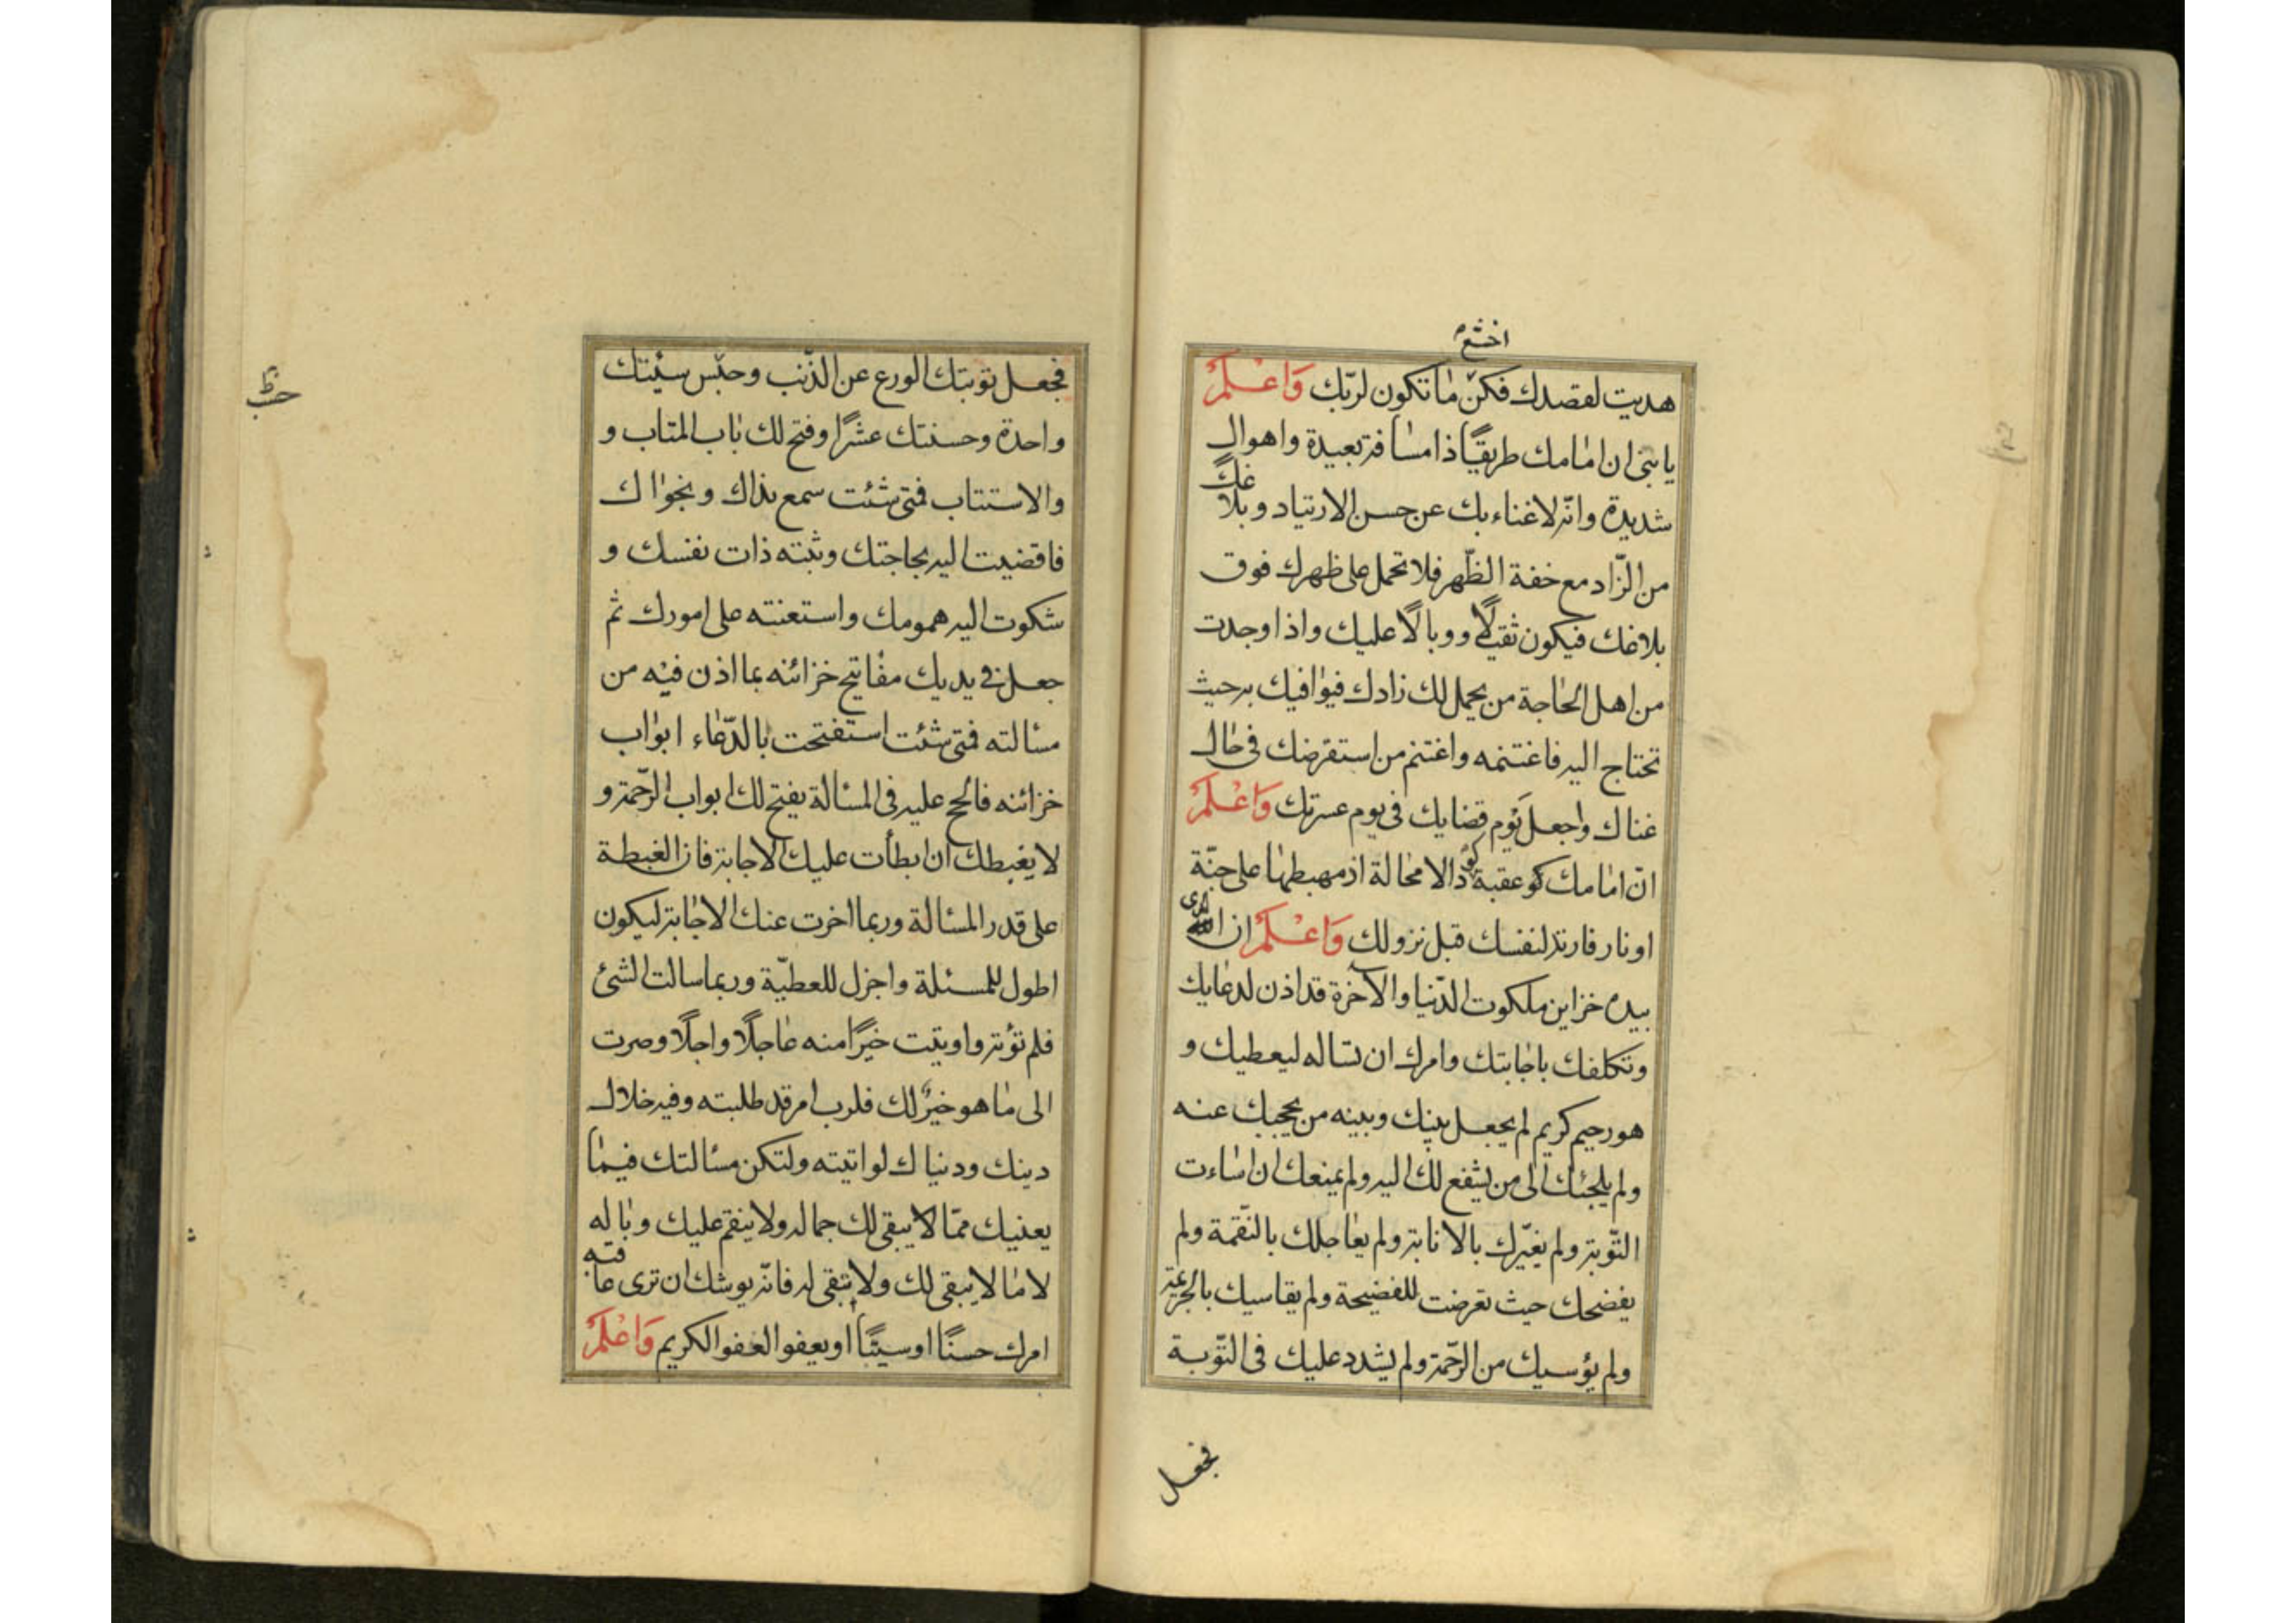 اخشع
هديت لقصدك فكن ما تكون لربّك وَاعْلَمْ
يا بنى ان امامك طريقًا ذا مسافة بعيدة واهوال
شديدة وانّه لا غناء بك عن حسن الارتياد وبلاغك
من الزّاد مع خفة الظّهر فلا تحمل على ظهرك فوق
بلاغك فيكون ثقيلًا ووبالًا عليك واذا وجدت
من اهل الحاجة من يحمل لك زادك فيوافيك به حيث
تحتاج اليه فاغتنمه واغتنم من استقرضك فى حال
غناك واجعل يَوْم قضايك فى يوم عسرتك وَاعْلَمْ
انّ امامك عقبة كؤدا لا محالة ان مهبطها على جنّة
او نار فارتد لنفسك قبل نزولك وَاعْلَمْ ان الله الذى
بيده خزاين ملكوت الدّنيا والآخرة قد اذن لدعايك
وتكلفك باجابتك وامرك ان تساله ليعطيك و
هو رحيم كريم لم يجعل بينك وبينه من يحجبك عنه
ولم يلجئك الى من يشفع لك اليه ولم يمنعك ان اساءت
التّوبة ولم يغيّرك بالانابة ولم يعاجلك بالنّقمة ولم
يفضحك حيث تعرضت للفضيحة ولم يقاسيك بالجريمة
ولم يؤسيك من الرّحمة ولم يشدد عليك فى التّوبة
فجعل
فجعل توبتك الورع عن الذّنب وحبّس سيّئتك
واحدة وحسنتك عشرًا وفتح لك باب المتاب و
والاستتاب فمتى شئت سمع نداك ونجواك
فاقضيت اليه بحاجتك وثبته ذات نفسك و
شكوت اليه همومك واستعنته على امورك ثم
جعل فى يديك مفاتيح خزائنه بما اذن فيه من
مسالته فمتى شئت استفتحت بالدّعاء ابواب
خزائنه فالحّ عليه فى المسالة يفتح لك ابواب الرّحمة و
لا يغبطك ان ابطأت عليك الاجابة فان الغبطة
على قدر المسالة وربما اخرت عنك الاجابة ليكون
اطول للمسئلة واجزل للعطيّة وربما سالت الشئ
فلم تؤته واوتيت خيرًا منه عاجلًا واجلًا وصرت
الى ما هو خيرٌ لك فلرب امر قد طلبته وفيه خلال
دينك ودنياك لو اتيته ولتكن مسالتك فيما
يعنيك ممّا لا يبقى لك جماله ولا ينقم عليك وباله
لا ما لا يبقى لك ولا تبقى له فانّه يوشك ان ترى عاقبة
امرك حسنًا او سيّئًا او يعفو العفو الكريم وَاعْلَمْ